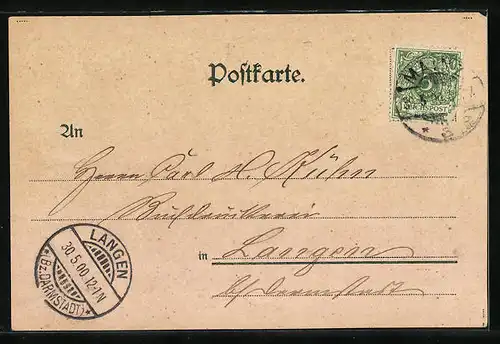 Postkarte.
MAINZ
REICHSPOST
An
Herrn Carl H. Kühn
Buchdruckerei
in Langen
b/ Darmstadt
LANGEN
30.5.00.12-1N
*(BZ.DARMSTADT)*